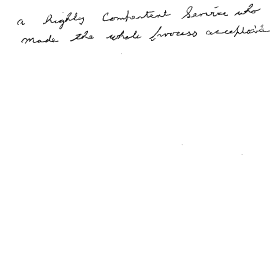 a highly Competent Service who
made the whole process acceptable